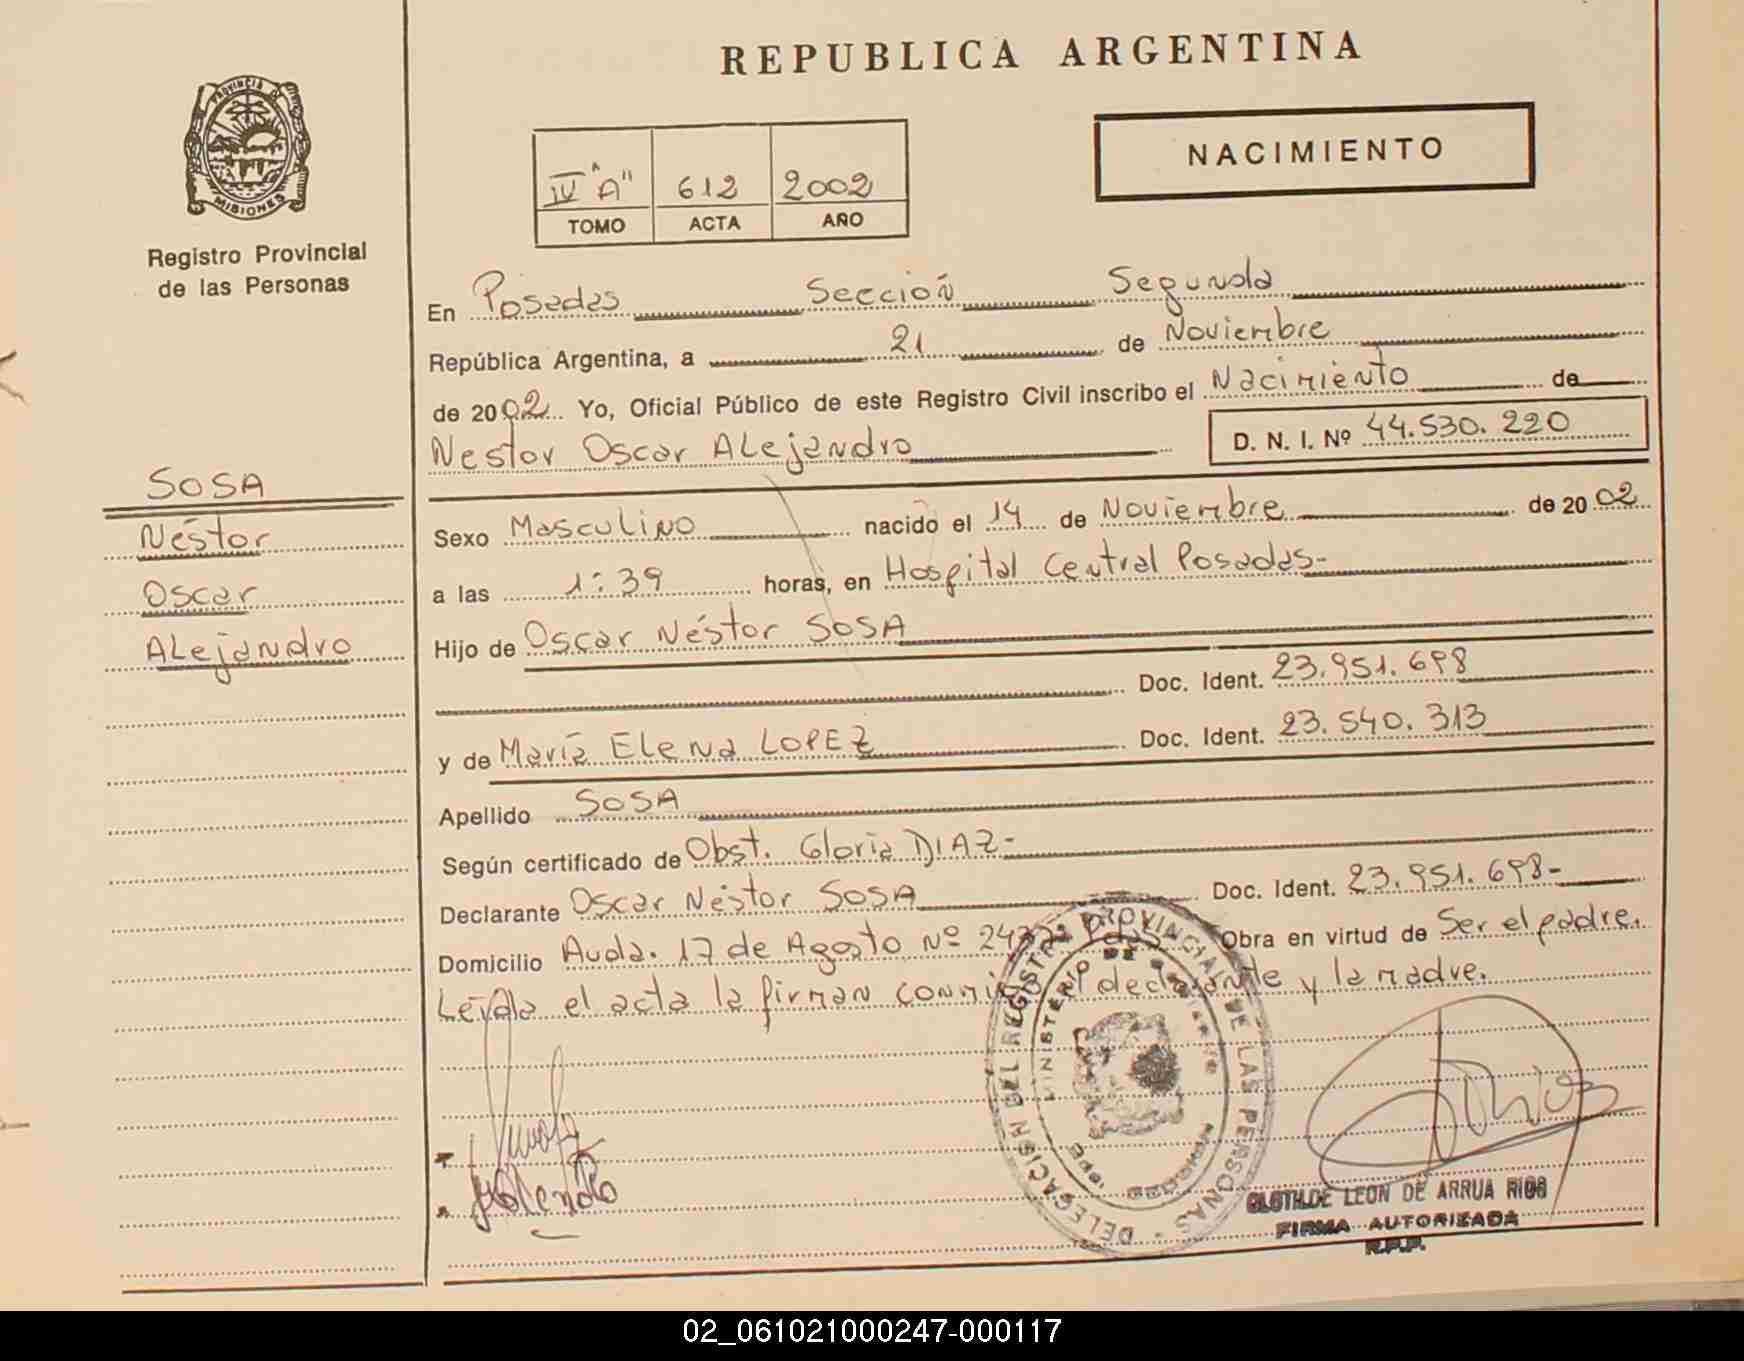 REPUBLICA ARGENTINA
PROVINCIA DE
MISIONES
Registro Provincial
de las Personas
NACIMIENTO
IV "A" 612 2002
TOMO ACTA AÑO
En Posadas Sección Segunda
República Argentina, a 21 de Noviembre
de 2002 Yo, Oficial Público de este Registro Civil inscribo el Nacimiento de
Nestor Oscar Alejandro D. N. I. Nº 44.530.220
SOSA
Néstor
Oscar
Alejandro
Sexo Masculino nacido el 14 de Noviembre de 2002
a las 1:39 horas, en Hospital Central Posadas-
Hijo de Oscar Néstor SOSA
Doc. Ident. 23.951.698
y de María Elena LOPEZ Doc. Ident. 23.540.313
Apellido SOSA
Según certificado de Obst. Gloria DIAZ-
Declarante Oscar Néstor SOSA Doc. Ident. 23.951.698-
Domicilio Avda. 17 de Agosto Nº Obra en virtud de Ser el padre.
Leída el acta la firman conmigo el declarante y la madre.
DELEGACION DEL REGISTRO PROVINCIAL DE LAS PERSONAS
MINISTERIO DE
CLOTILDE LEON DE ARRUA RIOS
FIRMA AUTORIZADA
R.P.P.
02_061021000247-000117